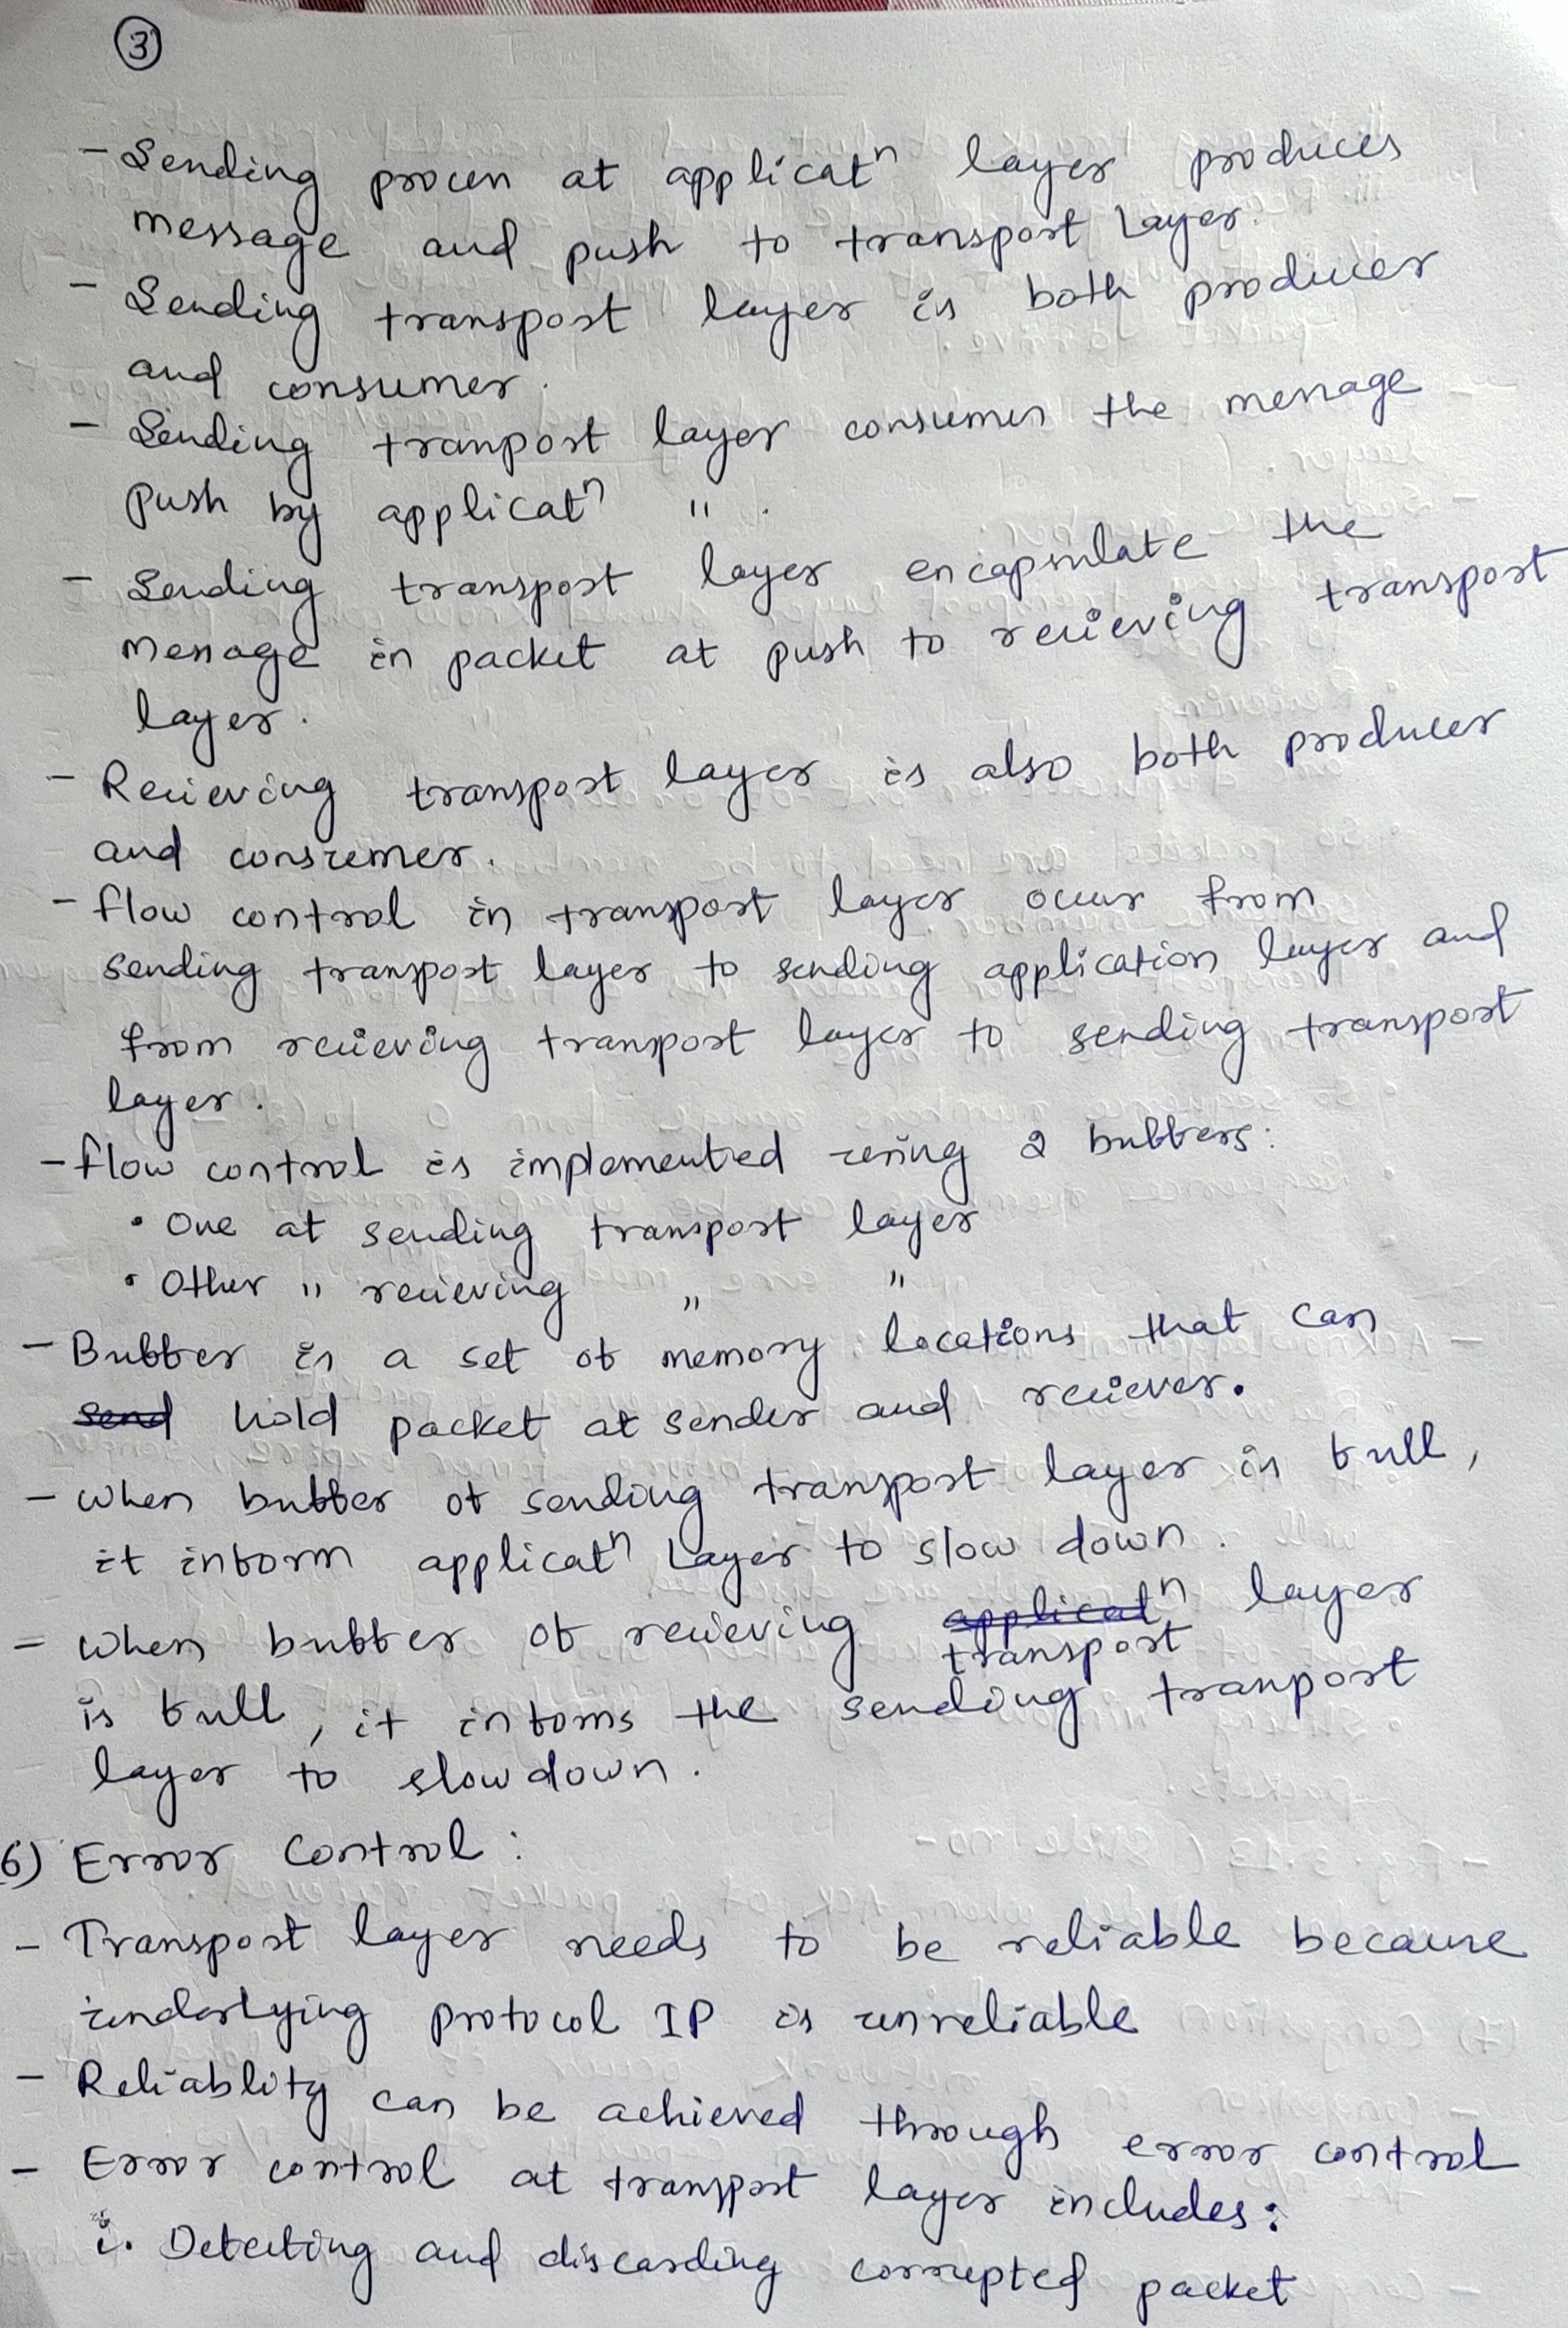 3
- Sending process at applicatn layer produces
message and push to transport Layer.
- Sending transport layer is both producer
and consumer.
- Sending tranport layer consumes the message
push by applicatn " .
- Sending transport layer encapsulate the
message in packet at push to recieving transport
layer.
- Recieving transport layer is also both producer
and consumer.
- flow control in transport layer occur from
sending transpost layer to sending application layer and
from recieving transport layer to sending transport
layer.
- flow control is implemented using 2 buffers:
• One at sending transport layer
• Other " recieving " "
- Buffer is a set of memory locations that can
send hold packet at sender and reciever.
- when buffer of sending transport layer is full,
it inform applicatn Layer to slow down.
- when buffer of recieving applicatn layer
transport
is full, it infoms the sending tranport
layer to slowdown.
6) Error Control:
- Transport layer needs to be reliable because
underlying protocol IP is unreliable
- Reliablity can be achieved through error control
- Error control at transport layer includes:
i. Detecting and discarding corrupted packet